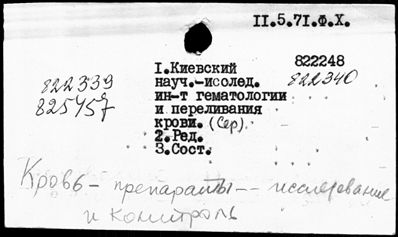 II.5.71.Ф.Х.
822248
822339
822340
825457
I.Киевский
науч.-исслед.
ин-т гематологии
и переливания
крови. (Сер)
2.Ред.
3.Сост.
Кровь – препараты – исследование
и контроль